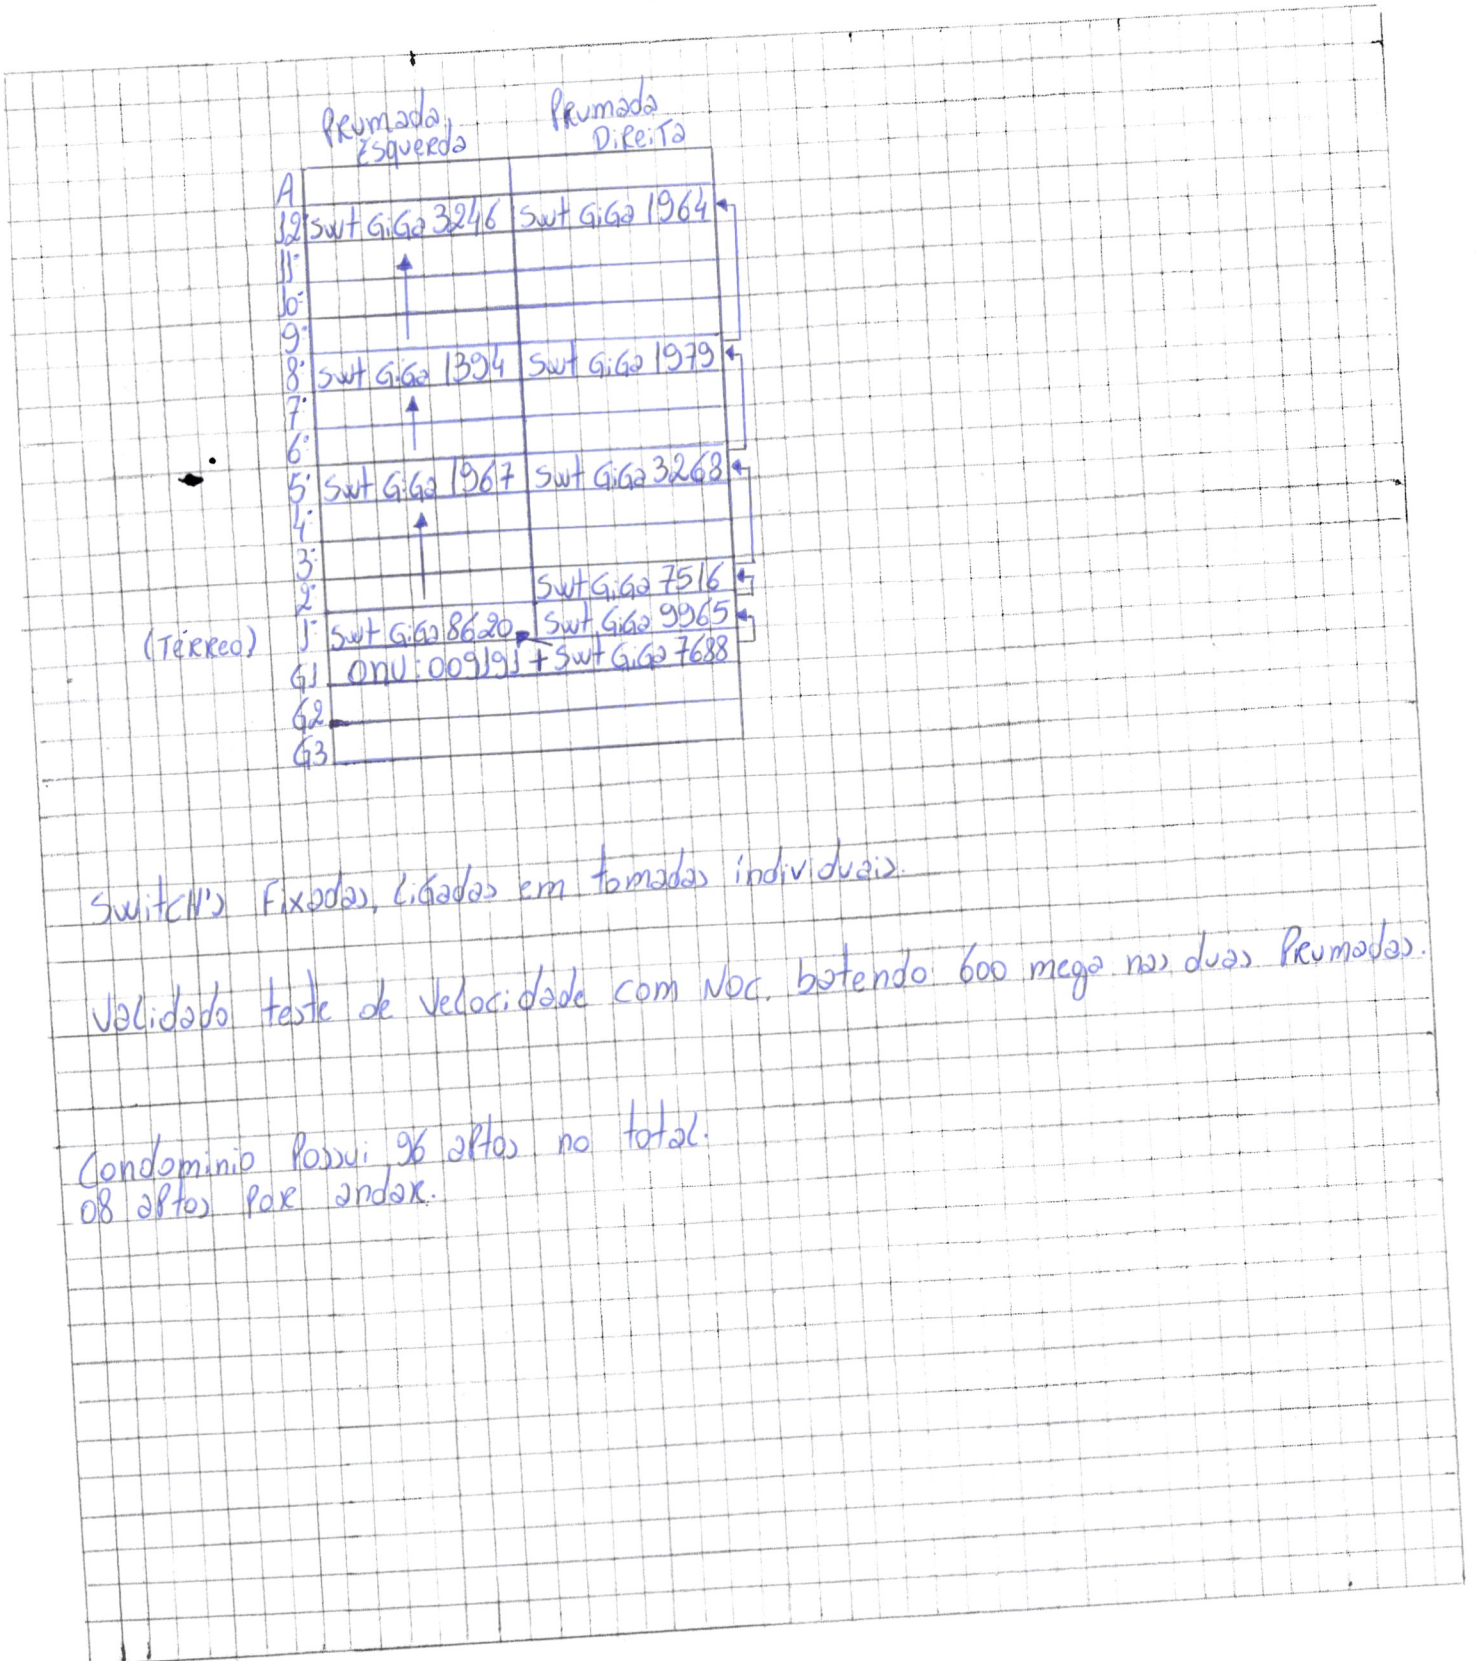 Prumada Esquerda Prumada Direita
A
12 Swt GiGa 3246 Swt GiGa 1964
11º
10º
9º
8º Swt GiGa 1394 Swt GiGa 1979
7º
6º
5º Swt GiGa 1967 Swt GiGa 3268
4º
3º
2º Swt GiGa 7516
(Térreo) 1º Swt GiGa 8620 Swt GiGa 9965
G1 ONU: 009191 + Swt GiGa 7688
G2
G3
Switch's Fixadas, Ligadas em tomadas individuais.
Validado teste de Velocidade com NOC. batendo 600 mega nas duas Prumadas.
Condominio Possui 96 aptos no total.
08 aptos por andar.